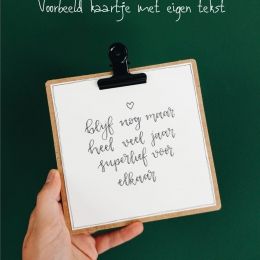 Voorbeeld kaartje met eigen tekst
blijf nog maar
heel veel jaar
superlief voor
elkaar